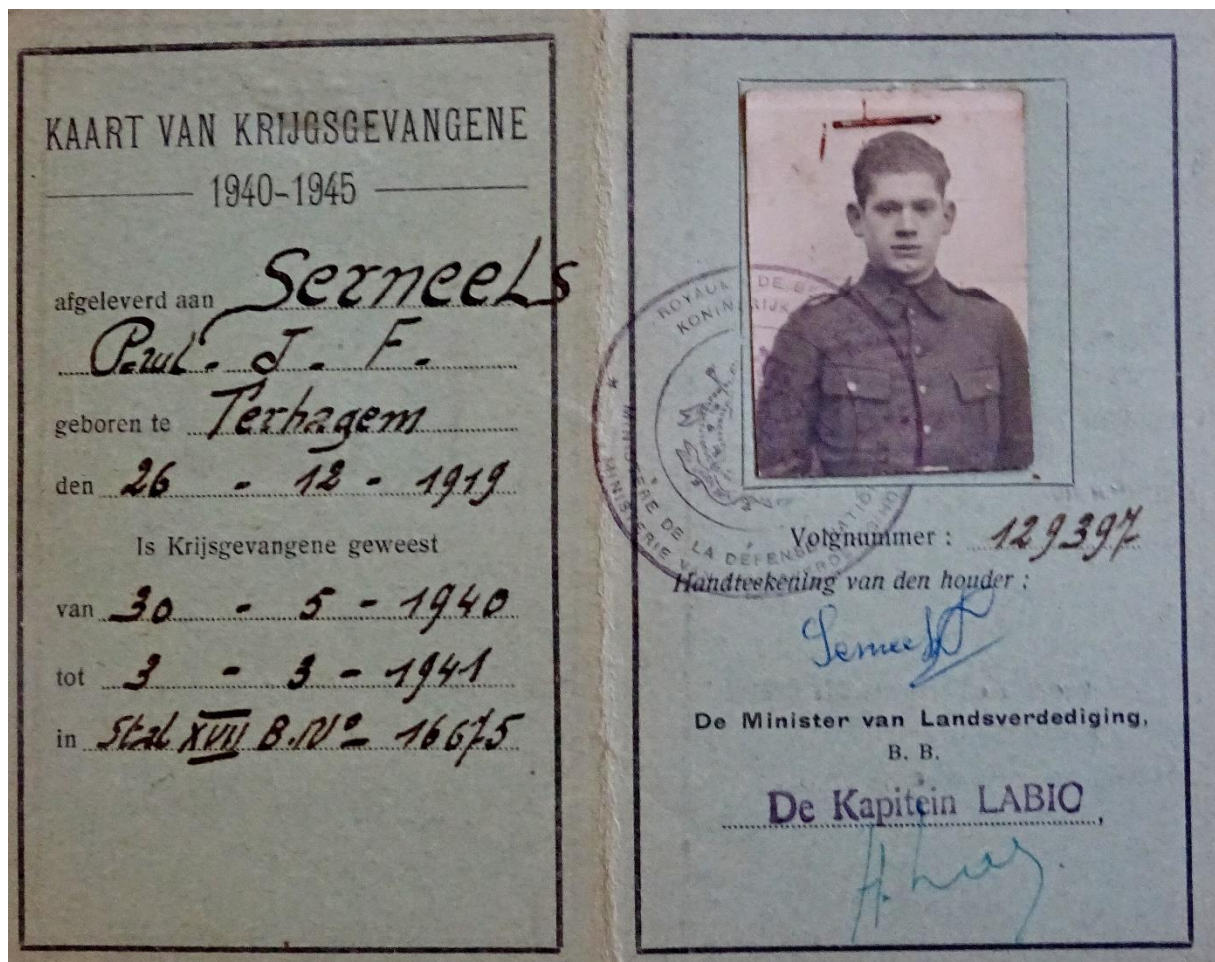 KAART VAN KRIJGSGEVANGENE
1940-1945
afgeleverd aan Serneels
Paul. J. F.
geboren te Terhagem
den 26 - 12 - 1919
Is Krijsgevangene geweest
van 30 - 5 - 1940
tot 3 - 3 - 1941
in Stal XVII B. No 16675
ROYAUME DE BE
KONINKRIJK
MINISTÈRE DE LA DÉFENSE NATION
MINISTERIE VA
Volgnummer : 129397
Handteekening van den houder :
Serneels
De Minister van Landsverdediging,
B. B.
De Kapitein LABIO,